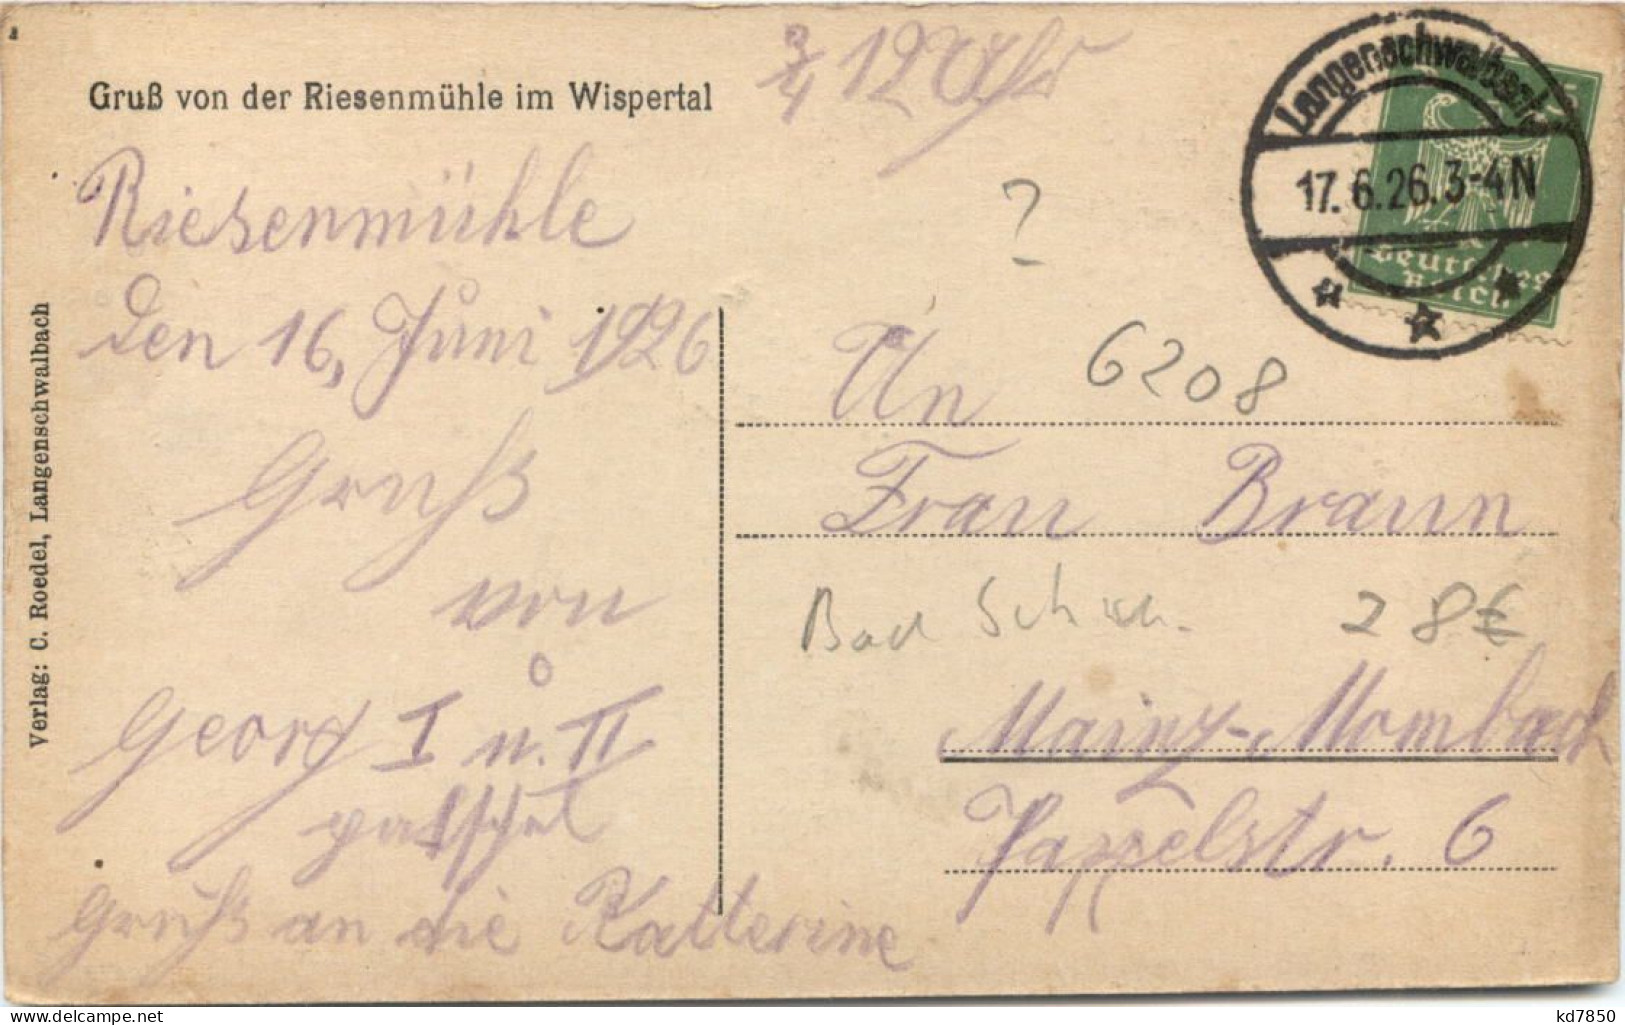 Gruß von der Riesenmühle im Wispertal
3/4 12 Uhr
Langenschwalbach
17.6.26.3-4N
5
Deutsches
Reich
Riesenmühle
den 16, Juni 1926
Gruß
von
Georg I u. II
Gruß an die Katterine
?
6208
An
Frau Braun
Bad Schw.
28€
Mainz-Mombach
Pappelstr. 6
Verlag: C. Roedel, Langenschwalbach
www.delcampe.net
kd7850